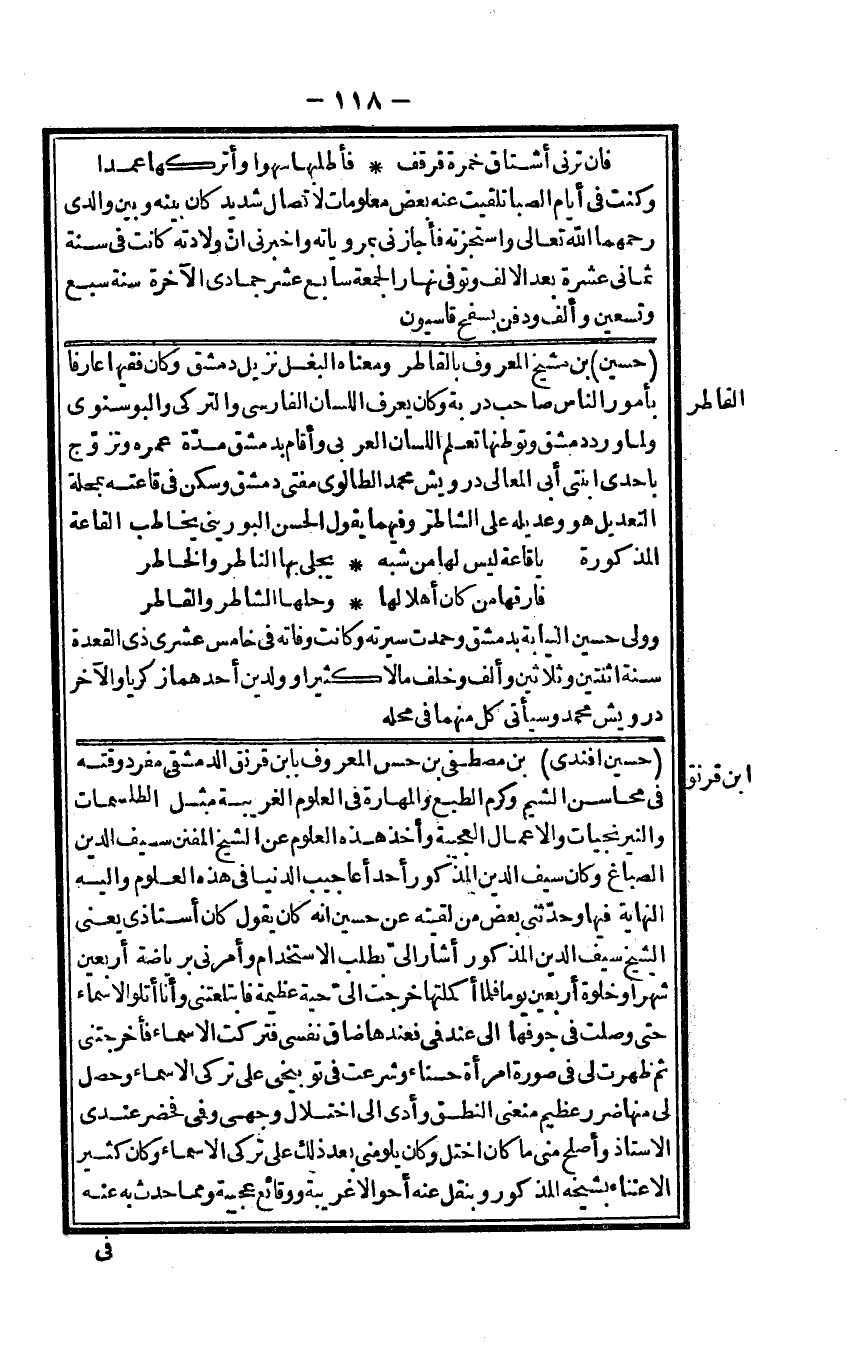 - ١١٨ -
فان ترنى أشتاق خمرة قرقف * فأطلبها سهوا وأتركها عمدا
وكنت فى أيام الصبا تلقيت عنه بعض معلومات لاتصال شديد كان بينه وبين والدى
رحمهما الله تعالى واستجزته فأجازنى بمروياته واخبرنى انّ ولادته كانت فى سنة
ثمانى عشرة بعد الالف وتوفى نهار الجمعة سابع عشر جمادى الآخرة سنة سبع
وتسعين وألف ودفن بسفح قاسيون
(حسين) بن شيخ المعروف بالقاطر ومعناه البغل نزيل دمشق وكان فقيها عارفا
القاطر
بأمور الناس صاحب دربة وكان يعرف اللسان الفارسى والتركى والبوسنوى
ولما ورد دمشق وتوطنها تعلم اللسان العربى وأقام بدمشق مدّة عمره وتزوّج
باحدى ابنتى أبى المعالى درويش محمد الطالوى مفتى دمشق وسكن فى قاعته بمحلة
التعديل هو وعديله على الشاطر وفيهما يقول الحسن البورينى يخاطب القاعة
المذكورة ياقاعة ليس لها من شبه * يجلى بها الناظر والخاطر
فارقها من كان أهلا لها * وحلها الشاطر والقاطر
وولى حسين النيابة بدمشق وحمدت سيرته وكانت وفاته فى خامس عشرى ذى القعدة
سنة اثنتين وثلاثين وألف وخلف مالا كثيرا وولدين أحدهما زكريا والآخر
درويش محمد وسيأتى كل منهما فى محله
(حسين افندى) بن مصطفى بن حسن المعروف بابن قرنق الدمشقى مفرد وقته
ابن قرنق
فى محاسن الشيم وكرم الطبع والمهارة فى العلوم الغريبة مثل الطلسمات
والنيرنجيات والاعمال العجيبة وأخذ هذه العلوم عن الشيخ المفنن سيف الدين
الصباغ وكان سيف الدين المذكور أحد أعاجيب الدنيا فى هذه العلوم واليه
النهاية فيها وحدّثنى بعض من لقيته عن حسين انه كان يقول كان أستاذى يعنى
الشيخ سيف الدين المذكور أشار الىّ بطلب الاستخدام وأمرنى برياضة أربعين
شهرا وخلوة أربعين يوما فلما أكملتها خرجت الىّ حية عظيمة فابتلعتنى وأنا أتلو الاسماء
حتى وصلت فى جوفها الى عند فى فعندها ضاق نفسى فتركت الاسماء فأخرجتنى
ثم ظهرت لى فى صورة امرأة حسناء وشرعت فى توبيخى على تركى الاسماء وحصل
لى منها ضرر عظيم منعنى النطق وأدى الى اختلال وجهى وفى فحضر عندى
الاستاذ وأصلح منى ما كان اختل وكان يلومنى بعد ذلك على تركى الاسماء وكان كثير
الاعتناء بشيخه المذكور وينقل عنه أحوالا غريبة ووقائع عجيبة ومما حدث به عنه
فى